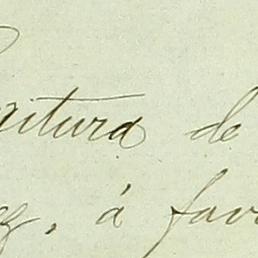 ritura de
z, á fav